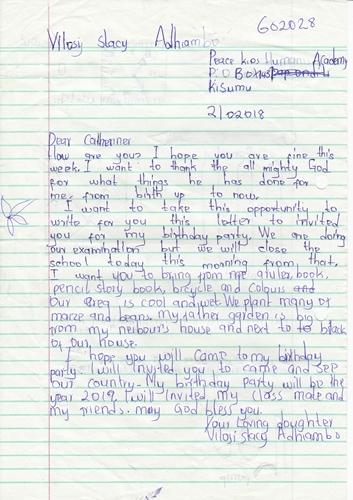 602028
Vilosy stacy Adhiambo
Peace kids Academy
P.O Box
Kisumu
2/02018
Dear Catheriner
How are you? I hope you are fine this
week. I want to thank the all mighty God
for what things he has done for
me from birth up to now.
I want to take this opportunity to
write for you this letter to invited
you for my birthday party. We are doing
our examination but we will close the
school today this morning from that.
I want you to bring from me atuler, book,
pencil story book, bicycle, and colours and
our area is cool and wet. We plant many of
maize and beans. My father garden is big
from my neibour's house and next to to black
of our house.
I hope you will came to my birthday
party. I will invited you to came and see
our country. My birthday party will be the
year 2019. I will invited my class mate and
my friends. may God bless you.
Your loving doughter
Vilosy stacy Adhiambo